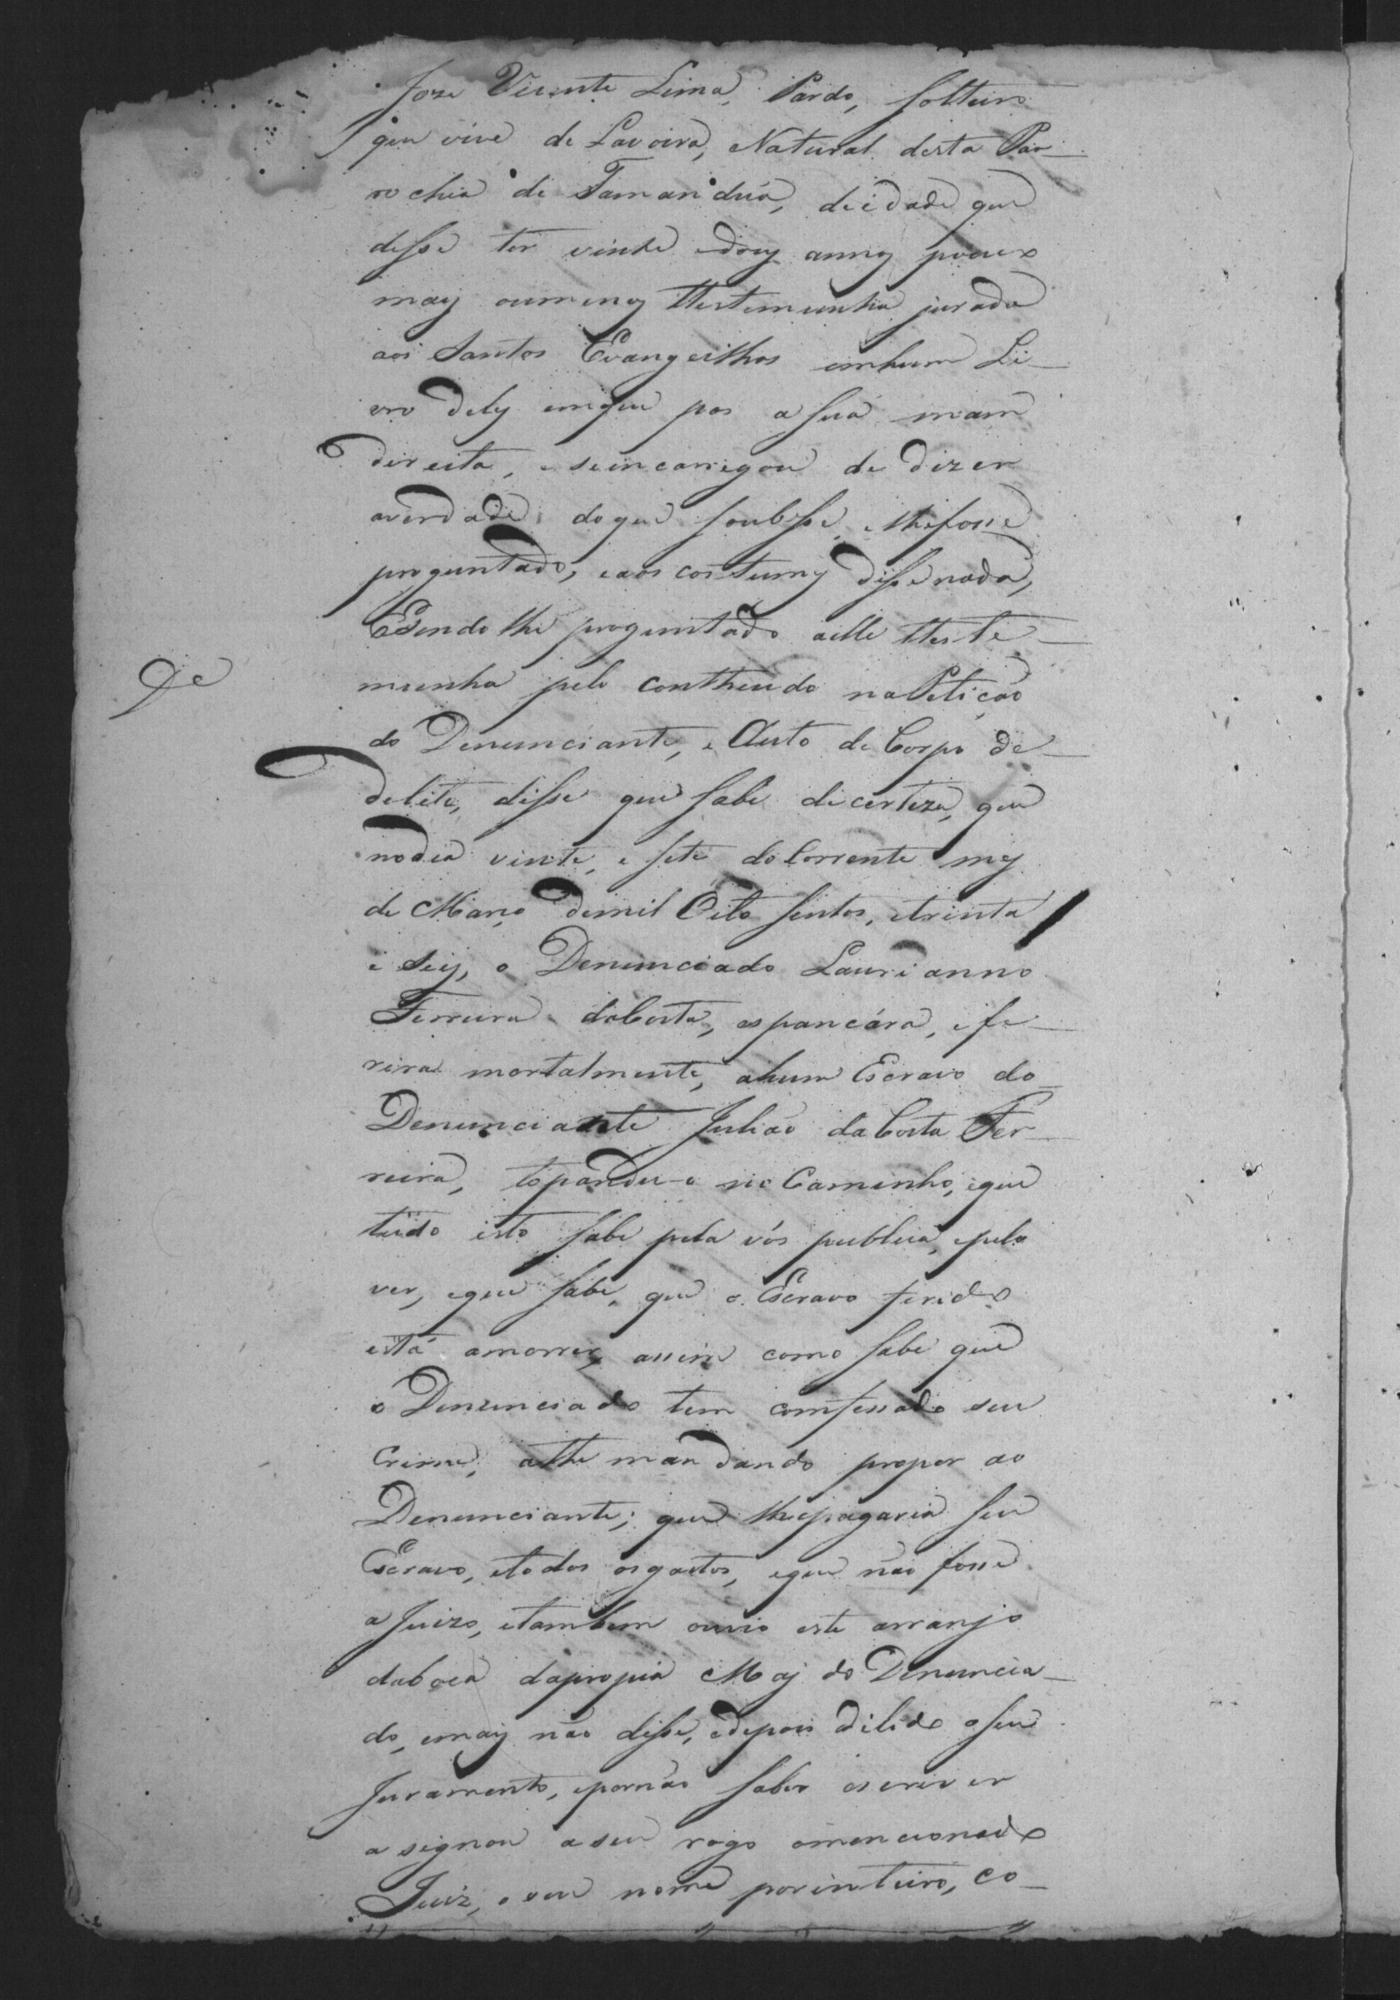 Joze Vicente Lima, Pardo, solteiro
que vive de Lavoira, Natural desta Par-
rochia de Tamanduá, deidade que
disse ter vinte edois annos pouco
mais oumenos ttestemunha jurada
aos Santos Evangeilhos emhum Li-
vro deles emque pos a sua mam
direita, e seincarregou de dizer
averdade doque soubesse, elhefosse
proguntado, eaos costumes disse nada,
Esendo lhe proguntado aelle tteste-
munha pelo conttheudo naPetição
do Denunciante, e Auto de Corpo de
delito, disse que sabe decerteza, que
nodia vinte, e sete doCorrente mes
de Março demil Oito sentos, etrinta
e seis, o Denunciado Laurianno
Ferreira daCosta, espancára, efe-
rira mortalmente, ahum Escravo do
Denunciante Julião daCosta Fer-
reira, topando-o no Caminho, eque
tudo isto sabe pela vós publica, epelo
ver, eque sabe, que o Escravo ferido
está amorrer, assim como sabe que
o Denunciado tem comfessado seu
Crime, atthe mandando propor ao
Denunciante; que lhepagaria seu
Escravo, etodos osgastos, eque não fosse
a Juizo, etambem ouvio este arranjo
daboca dapropia Maj do Denuncia-
do, emais não disse, edepois delido oseu
Juramento, epornão saber escriver
asignou aseu rogo omencionado
Juiz, o seu nome porinteiro, co-